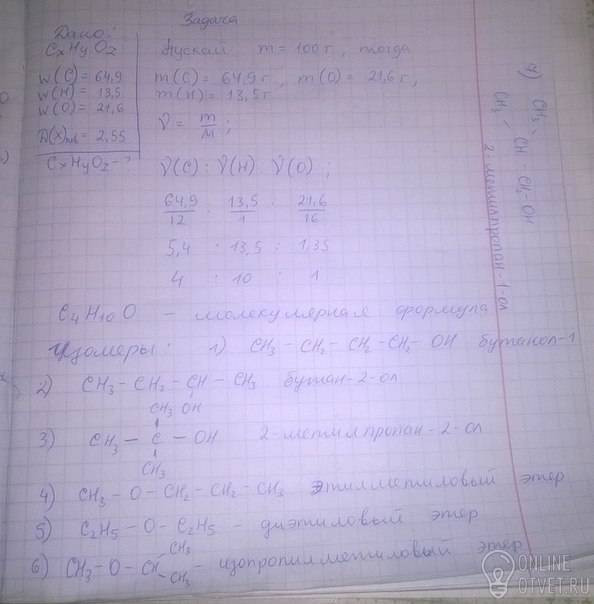 Задача
Дано:
CxHyO2
w(C) = 64,9
w(H) = 13,5
w(O) = 21,6
D(x) = 2,55
CxHyOz - ?
Пускай m = 100 г, тогда
m(C) = 64,9 г, m(O) = 21,6 г,
m(H) = 13,5 г
ν = m/M ;
ν(C) : ν(H) ν(O) ;
64,9/12 : 13,5/1 : 21,6/16
5,4 : 13,5 : 1,35
4 : 10 : 1
C4H10O – молекулярная формула
Изомеры: 1) CH3 – CH2 – CH2 – CH2 – OH бутанол-1
2) CH3 – CH2 – CH – CH3 бутан-2-ол
OH
CH3
3) CH3 – C – OH 2-метилпропан-2-ол
CH3
4) CH3 – O – CH2 – CH2 – CH3 этилметиловый этер
5) C2H5 – O – C2H5 – диэтиловый этер
6) CH3 – O – CH – изопропилметиловый этер
CH3
CH3
CH3
CH3
CH – CH2 – OH
2-метилпропан-1-ол
ONLINE
OTVET.RU